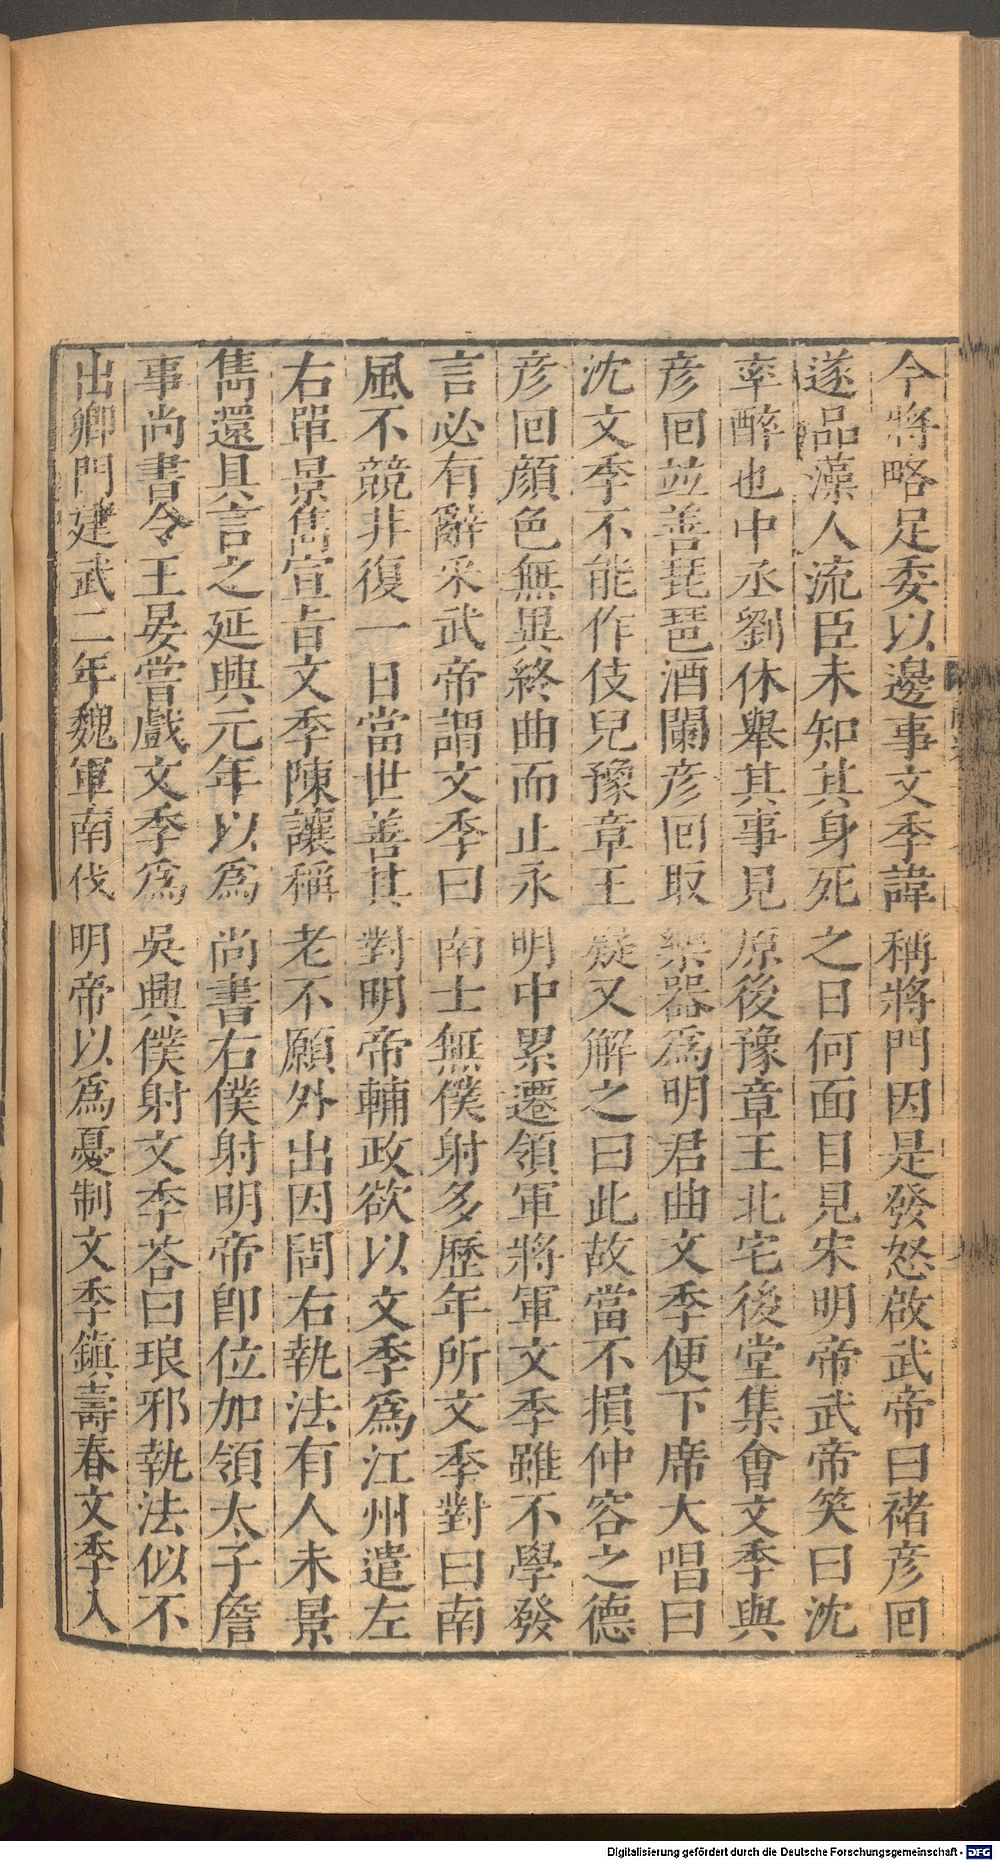 今將略足委以邊事文季諱稱將門因是發怒啟武帝曰禇彥回
遂品藻人流臣未知其身死之日何面目見宋明帝武帝笑曰沈
率醉也中丞劉休舉其事見原後豫章王北宅後堂集會文季與
彥回並善琵琶酒闌彥回取樂器爲明君曲文季便下席大唱曰
沈文季不能作伎兒豫章王嶷又解之曰此故當不損仲容之德
彥回顔色無異終曲而止永明中累遷領軍將軍文季雖不學發
言必有辭采武帝謂文季曰南士無僕射多歷年所文季對曰南
風不競非復一日當世善其對明帝輔政欲以文季爲江州遣左
右單景雋宣旨文季陳讓稱老不願外出因問右執法有人未景
雋還具言之延興元年以爲尚書右僕射明帝卽位加領太子詹
事尚書令王晏嘗戲文季爲吳興僕射文季荅曰琅邪執法似不
出卿門建武二年魏軍南伐明帝以爲憂制文季鎭壽春文季入
Digitalisierung gefördert durch die Deutsche Forschungsgemeinschaft - DFG